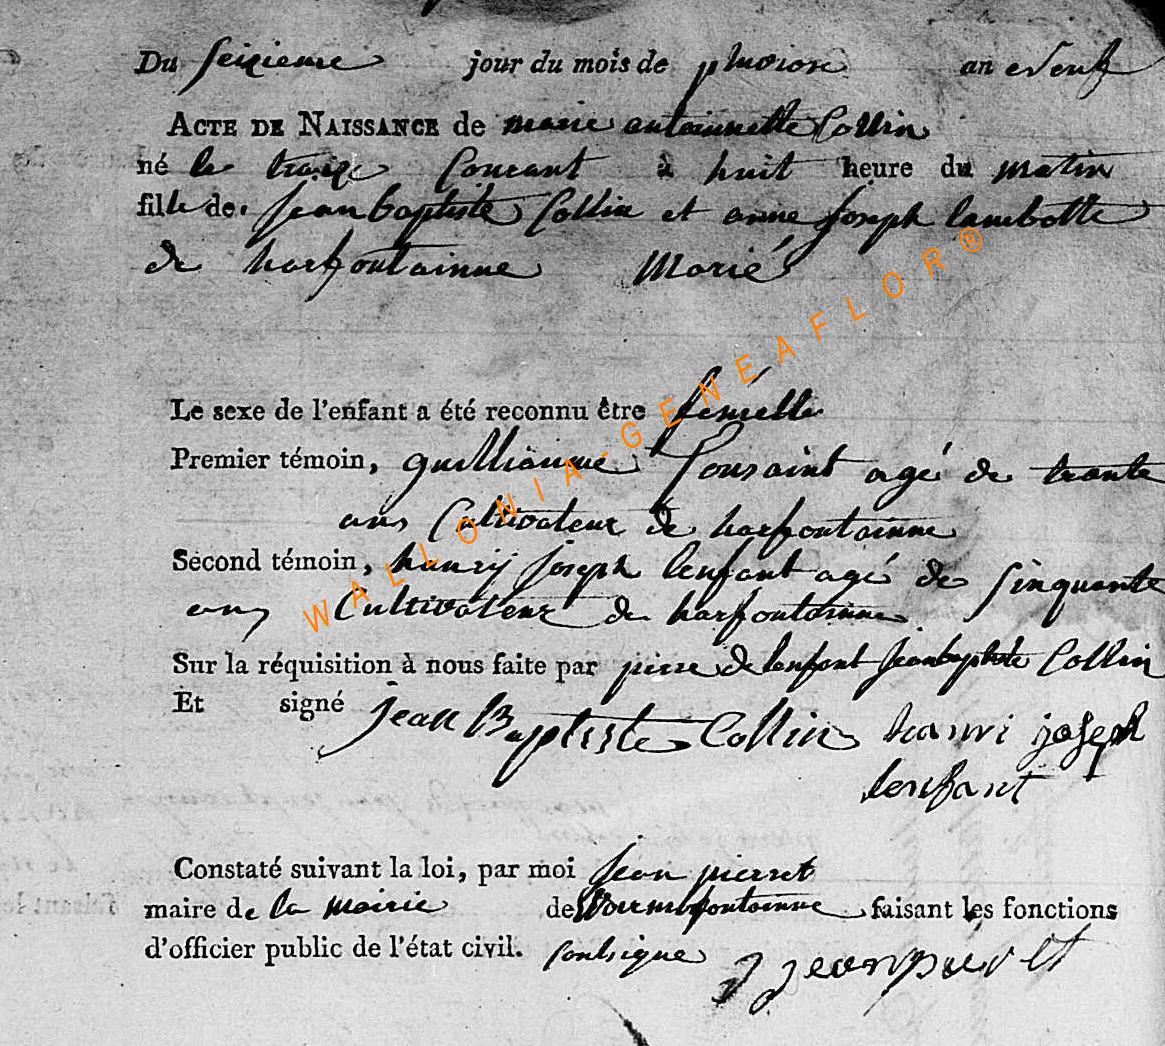 Du Seizieme jour du mois de pluviose an neuf
ACTE DE NAISSANCE de marie antoinnette Collin
né le traize Courant à huit heure du matin
fille de Jean baptiste Collin et anne Joseph lambotte
de harfontainne Marié
Le sexe de l'enfant a été reconnu être femelle
Premier témoin, guilliaume Tousaint agé de trante
ans Cultivateur de harfontainne
Second témoin, hanrij Joseph lenfant agé de Sinquante
ans Cultivateur de harfontainne
Sur la réquisition à nous faite par piere de lenfant Jean baptiste Collin
Et signé jean Baptiste Collin hanri joseph
lenfant
Constaté suivant la loi, par moi Jean pierret
maire de la mairie de faisant les fonctions
d'officier public de l'état civil. Soubsigne J jean pierret
WALLONIA-GENEAFLOR®